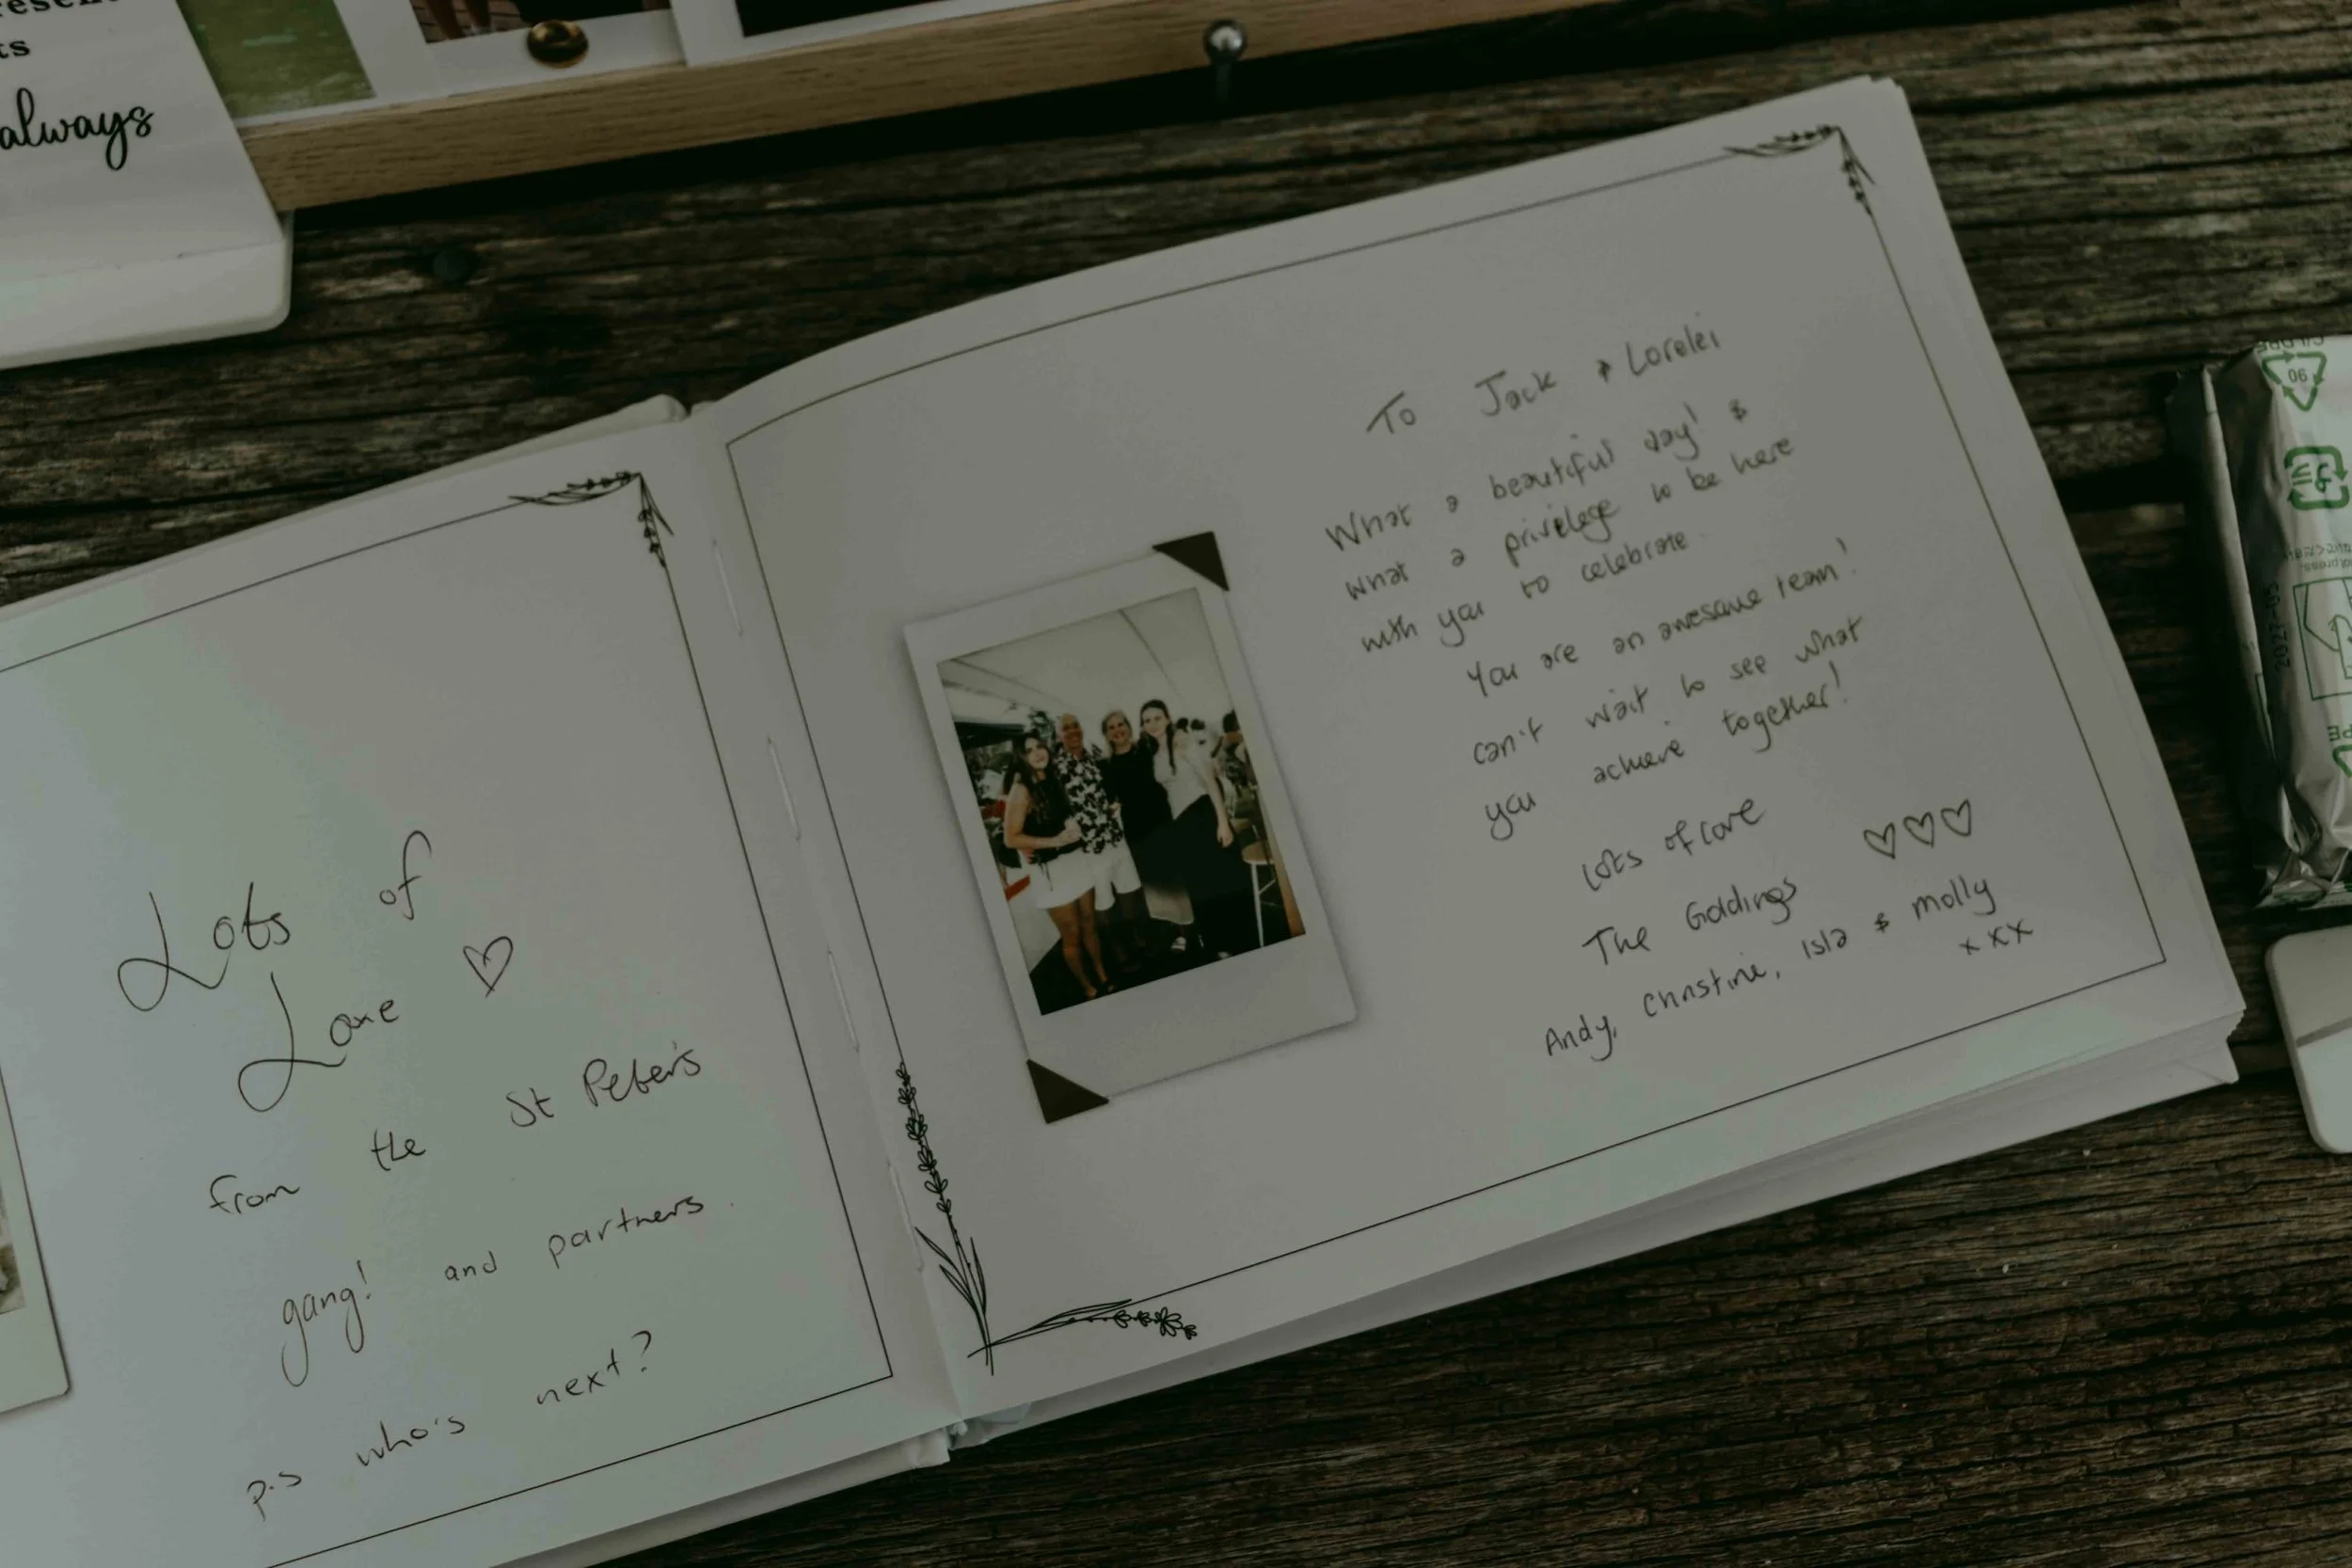 ts
always
Lots of
Love ♡
from the St Peter's
gang! and partners.
p.s who's next?
To Jack & Lorelei
What a beautiful day! &
what a privilege to be here
with you to celebrate.
You are an awesome team!
can't wait to see what
you achieve together!
Lots of Love
The Goldings ♡♡♡
Andy, Christine, Isla & Molly
xxx
06